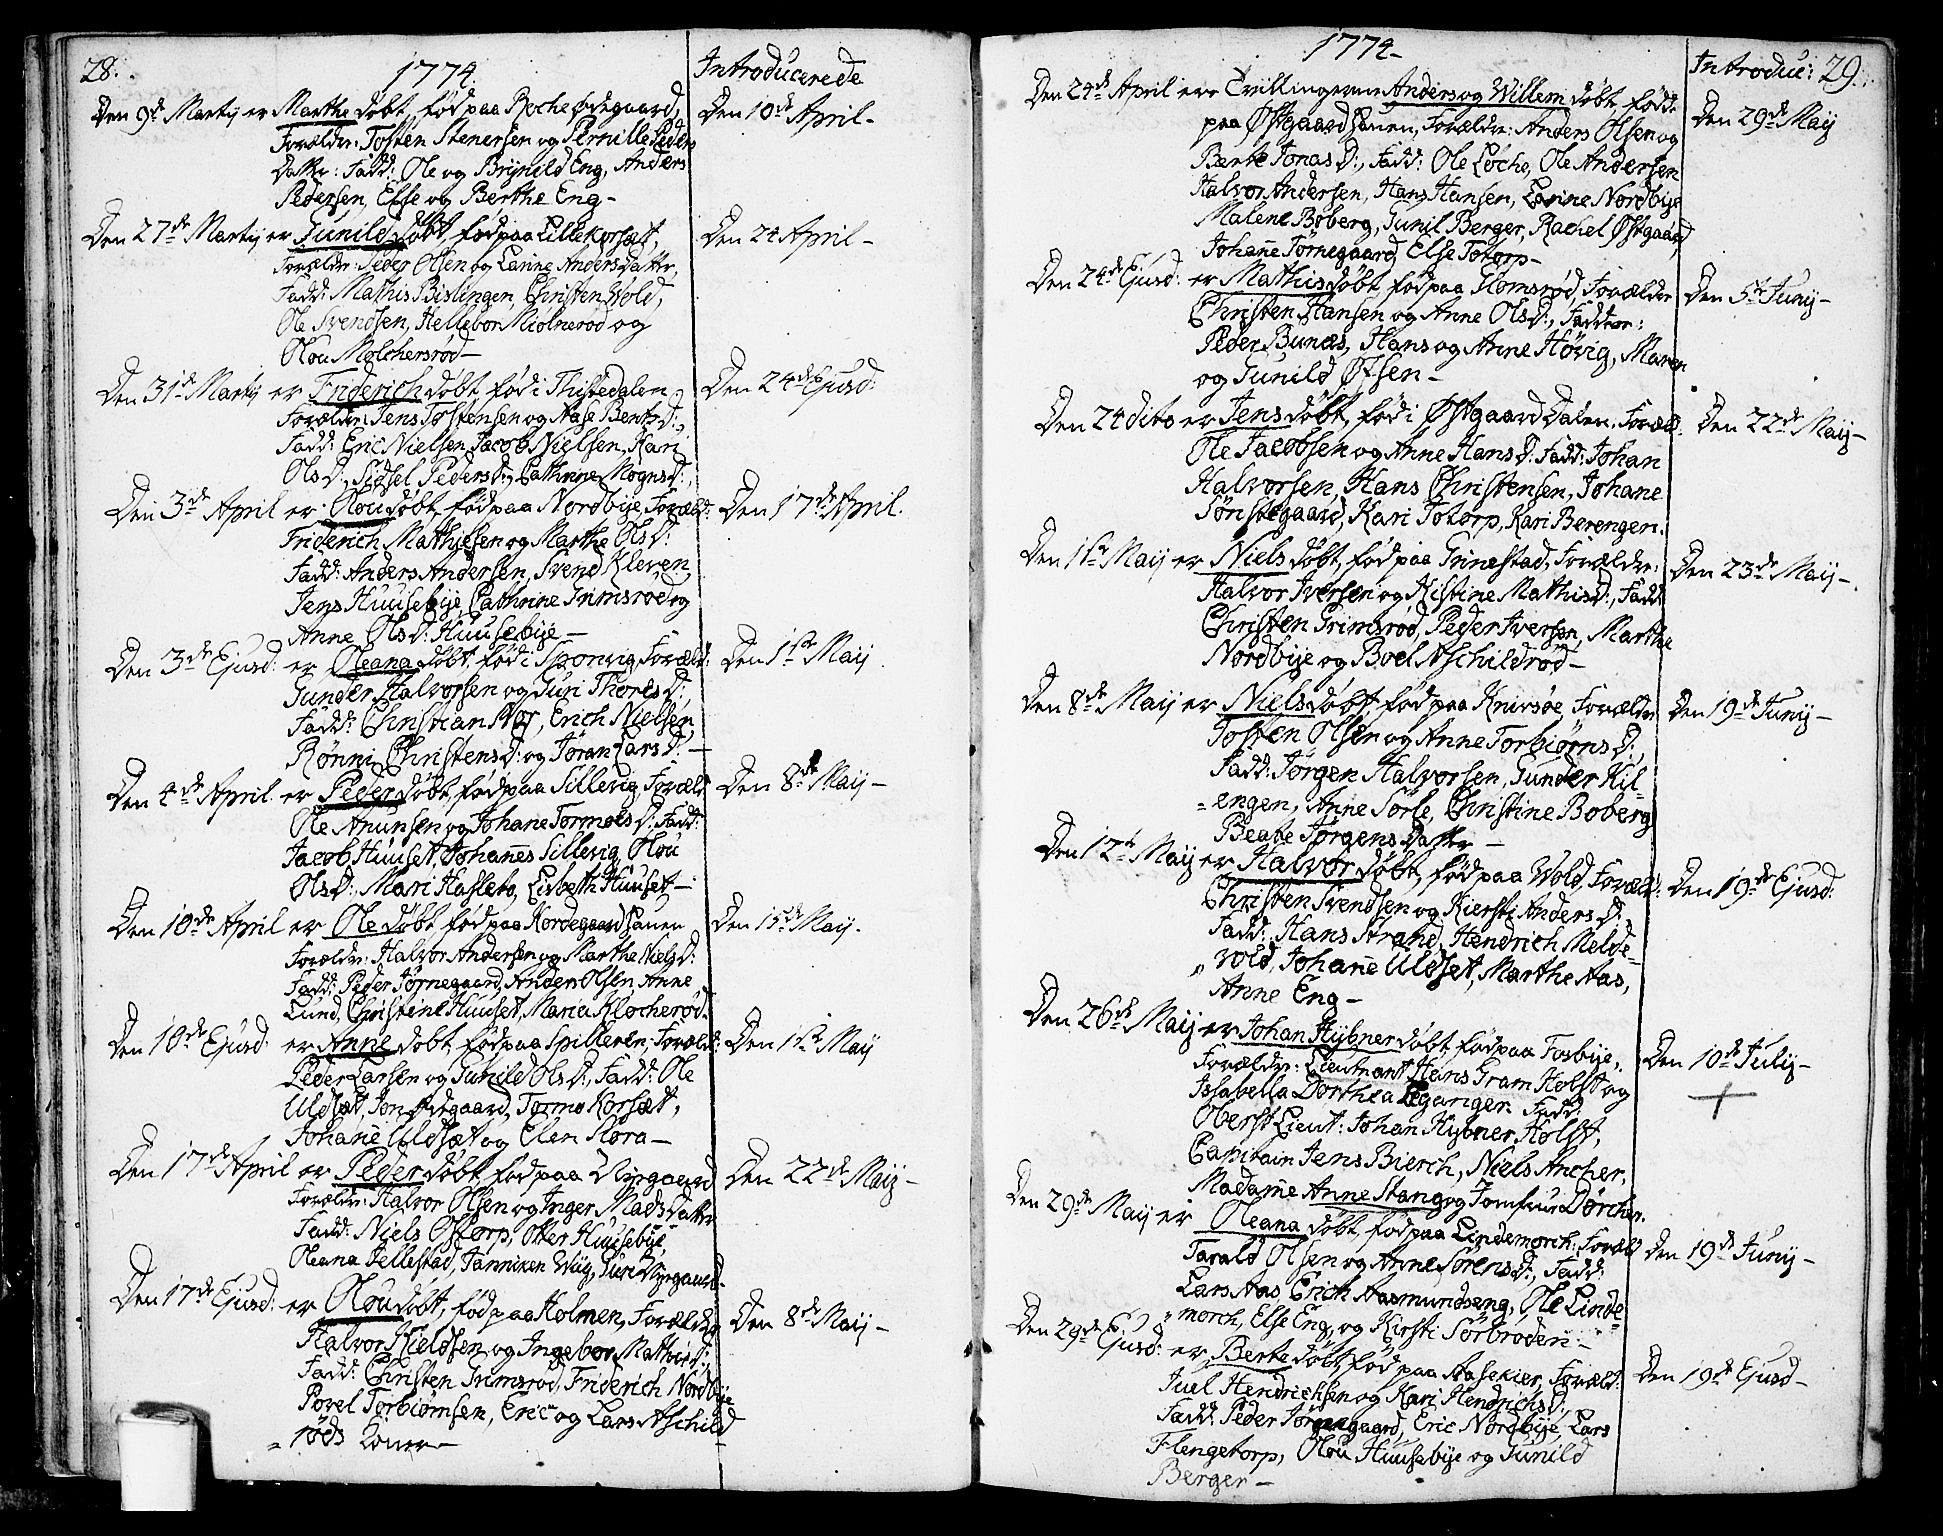 28.
1774.
Introducerede
Den 9de Martij er Marthe døbt, fød paa Roche ødegaard,
Forældre: Tosten Stenersen og Pernille Peders
Datter: Fadd: Ole og Brynild Eng, Anders
Pedersen, Else og Berthe Eng -
Den 10de April -
Den 27de Martij er Gunild døbt, fød paa Lillekorsæt,
Forældre: Peder Olsen og Larine Andersdatter,
Fadd: Mathis Bislingen, Christen Wold,
Ole Svendsen, Hellebor Miølnerød og
Olou Molchersrød -
Den 24 April -
Den 31de Martij er Friderich døbt, fød i Thistedalen,
Forældre: Jens Tostensen og Aase Bents D:,
Fadd: Eric Nielsen, Jacob Nielsen, Kari
Ols D:, Sidsel Peders D:, Cathrine Mogns D:,
Den 24de Ejusd:
Den 3de April er Olou døbt, fød paa Nordbye, Foræld:
Friderich Mathiesen og Marthe Ols D:
Fadd: Anders Andersen, Svend Kleven,
Jens Huusebye, Cathrine Grimsrød og
Anne Ols D: Huusebye -
Den 17de April.
Den 3de Ejusd: er Oleana døbt, fød i Sponvig, Foræld:
Gunder Halvorsen og Guri Thores D:,
Fadd: Christian Roy, Erich Nielsen,
Rønni Christens D: og Jøran Lars D: -
Den 1ste Maij
Den 4de April er Peder døbt, fød paa Sillevig, Foræld
Ole Anunsen og Johane Tormoes D: Fadd:
Jacob Huuset, Johannes Sillevig, Olou
Ols D:, Mari Hasleto, Lisbeth Huuset -
Den 8de Maij -
Den 10de April er Ole døbt, fød paa Nordegaard Sauen
Forældre: Halvor Andersen og Marthe Niels D:
Fadd: Peder Tørnegaard, Anders Olsen, Anne
Lund, Christine Huuset, Maria Klocherød.
Den 15de Maij.
Den 10de Ejusd: er Anne døbt, fød paa Spilleren, Foræld:
Peder Larsen og Gunild Ols D:, Fadd: Ole
Uldsæt, Jon Ødegaard, Tormo Korsæt,
Johanne Uldsæt og Elen Flora -
Den 1ste Maij
Den 17de April er Peder døbt, fød paa Nygaard
Forældre: Halvor Olsen og Inger Mads Datter
Fadd: Niels Ostorp, Otter Huusebye,
Oleana Jellestad, Janniken Wiig, Guri Nygaard.
Den 22de Maij -
Den 17de Ejusd: er Olou døbt, fød paa Holmen, Forældre
Halvor Kieldsen og Ingebor Mathis D:,
Fadd: Christen Grimsrød, Friderich Nordbye
Povel Torbiørnsen, Eric og Lars Aschild
= røds Koner -
Den 8de Maij -
1774 -
Introduc: 29.
Den 24de April ere Tvillingerne Anders og Willem døbt, fødde
paa Østgaard Sauen, Forældre: Anders Olsen og
Berte Jonas D:, Fadd: Ole Løche, Ole Andersen
Halvor Andersen, Hans Hansen, Larine Nordbye
Malene Boberg, Gunil Berger, Rachel Østgaard,
Johanne Tørnegaard, Else Totorp -
Den 29de Maij
Den 24de Ejusd: er Mathis døbt, fød paa Glomsrød, Forældre
Christen Hansen og Anne Ols D:, Faddere:
Peder Bunæs, Hans og Anne Høvig, Maren
og Gunild Olsen -
Den 5te Junij -
Den 24 dito er Jens døbt, fød i Østgaard Dalen, Foræld:
Ole Jacobsen og Anne Hans D: Fadd: Johan
Halvorsen, Hans Christensen, Johane
Tønstegaard, Kari Totorp, Kari Berengen.
Den 22de Maij -
Den 1ste Maij er Niels døbt, fød paa Grinestad, Forældre:
Halvor Iversen og Kistine Mathis D:, Fadd:
Christen Grimsrød, Peder Iversen, Marthe
Nordbye og Boel Aschildrød -
Den 23de Maij -
Den 8de Maij er Niels døbt, fød paa Knivsøe, Forældre
Tosten Olsen og Anne Torbiørns D:,
Fadd: Jørgen Halvorsen, Gunder Kil-
= engen, Anne Sørle, Christine Boberg
Beate Jørgens Datter -
Den 19de Junij -
Den 12te Maij er Halvor døbt, fød paa Wold, Foræld:
Christen Svendsen og Kiersti Anders D:,
Fadd: Hans Strand, Hendrich Melde-
= vold, Johanne Uldset, Marthe Aas,
Anne Eng -
Den 19de Ejusd:
Den 26de Maij er Johan Hybner døbt, fød paa Fosbye,
Forældre: Lieutnant Hans Gram Holst og
Issabella Dorthea Leganger. Fadd:
Oberst Lieut: Johan Hybner Holst,
Capitain Jens Bierch, Niels Ancher,
Madame Anne Stang og Jomfrue Dorcher.
Den 10de Julij -
+
Den 29de Maij er Oleana døbt, fød paa Lindemorch, Foræld
Tarald Olsen og Anne Sørens D:, Fadd:
Lars Aas, Erich Aasmundseng, Ole Linde-
= morch, Else Eng, og Kirsti Sørbrøden -
Den 19de Junij -
Den 29de Ejusd: er Berte døbt, fød paa Aasekier, Foræld:
Juel Hendrichsen og Kari Hendrichs D:,
Fadd: Peder Jørgengaard, Eric Nordbye, Lars
Flengetorp, Olou Huusebye og Gunild
Berger -
Den 19de Ejusd -